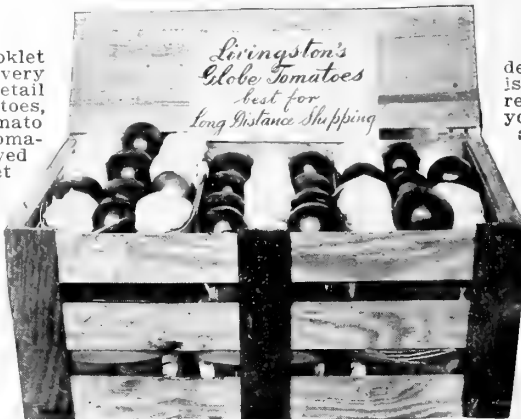 oklet
very
etail
toes,
mato
oma-
ved
et
Livingston's
Globe Tomatoes
best for
Long Distance Shipping
de
is
re
yo
s